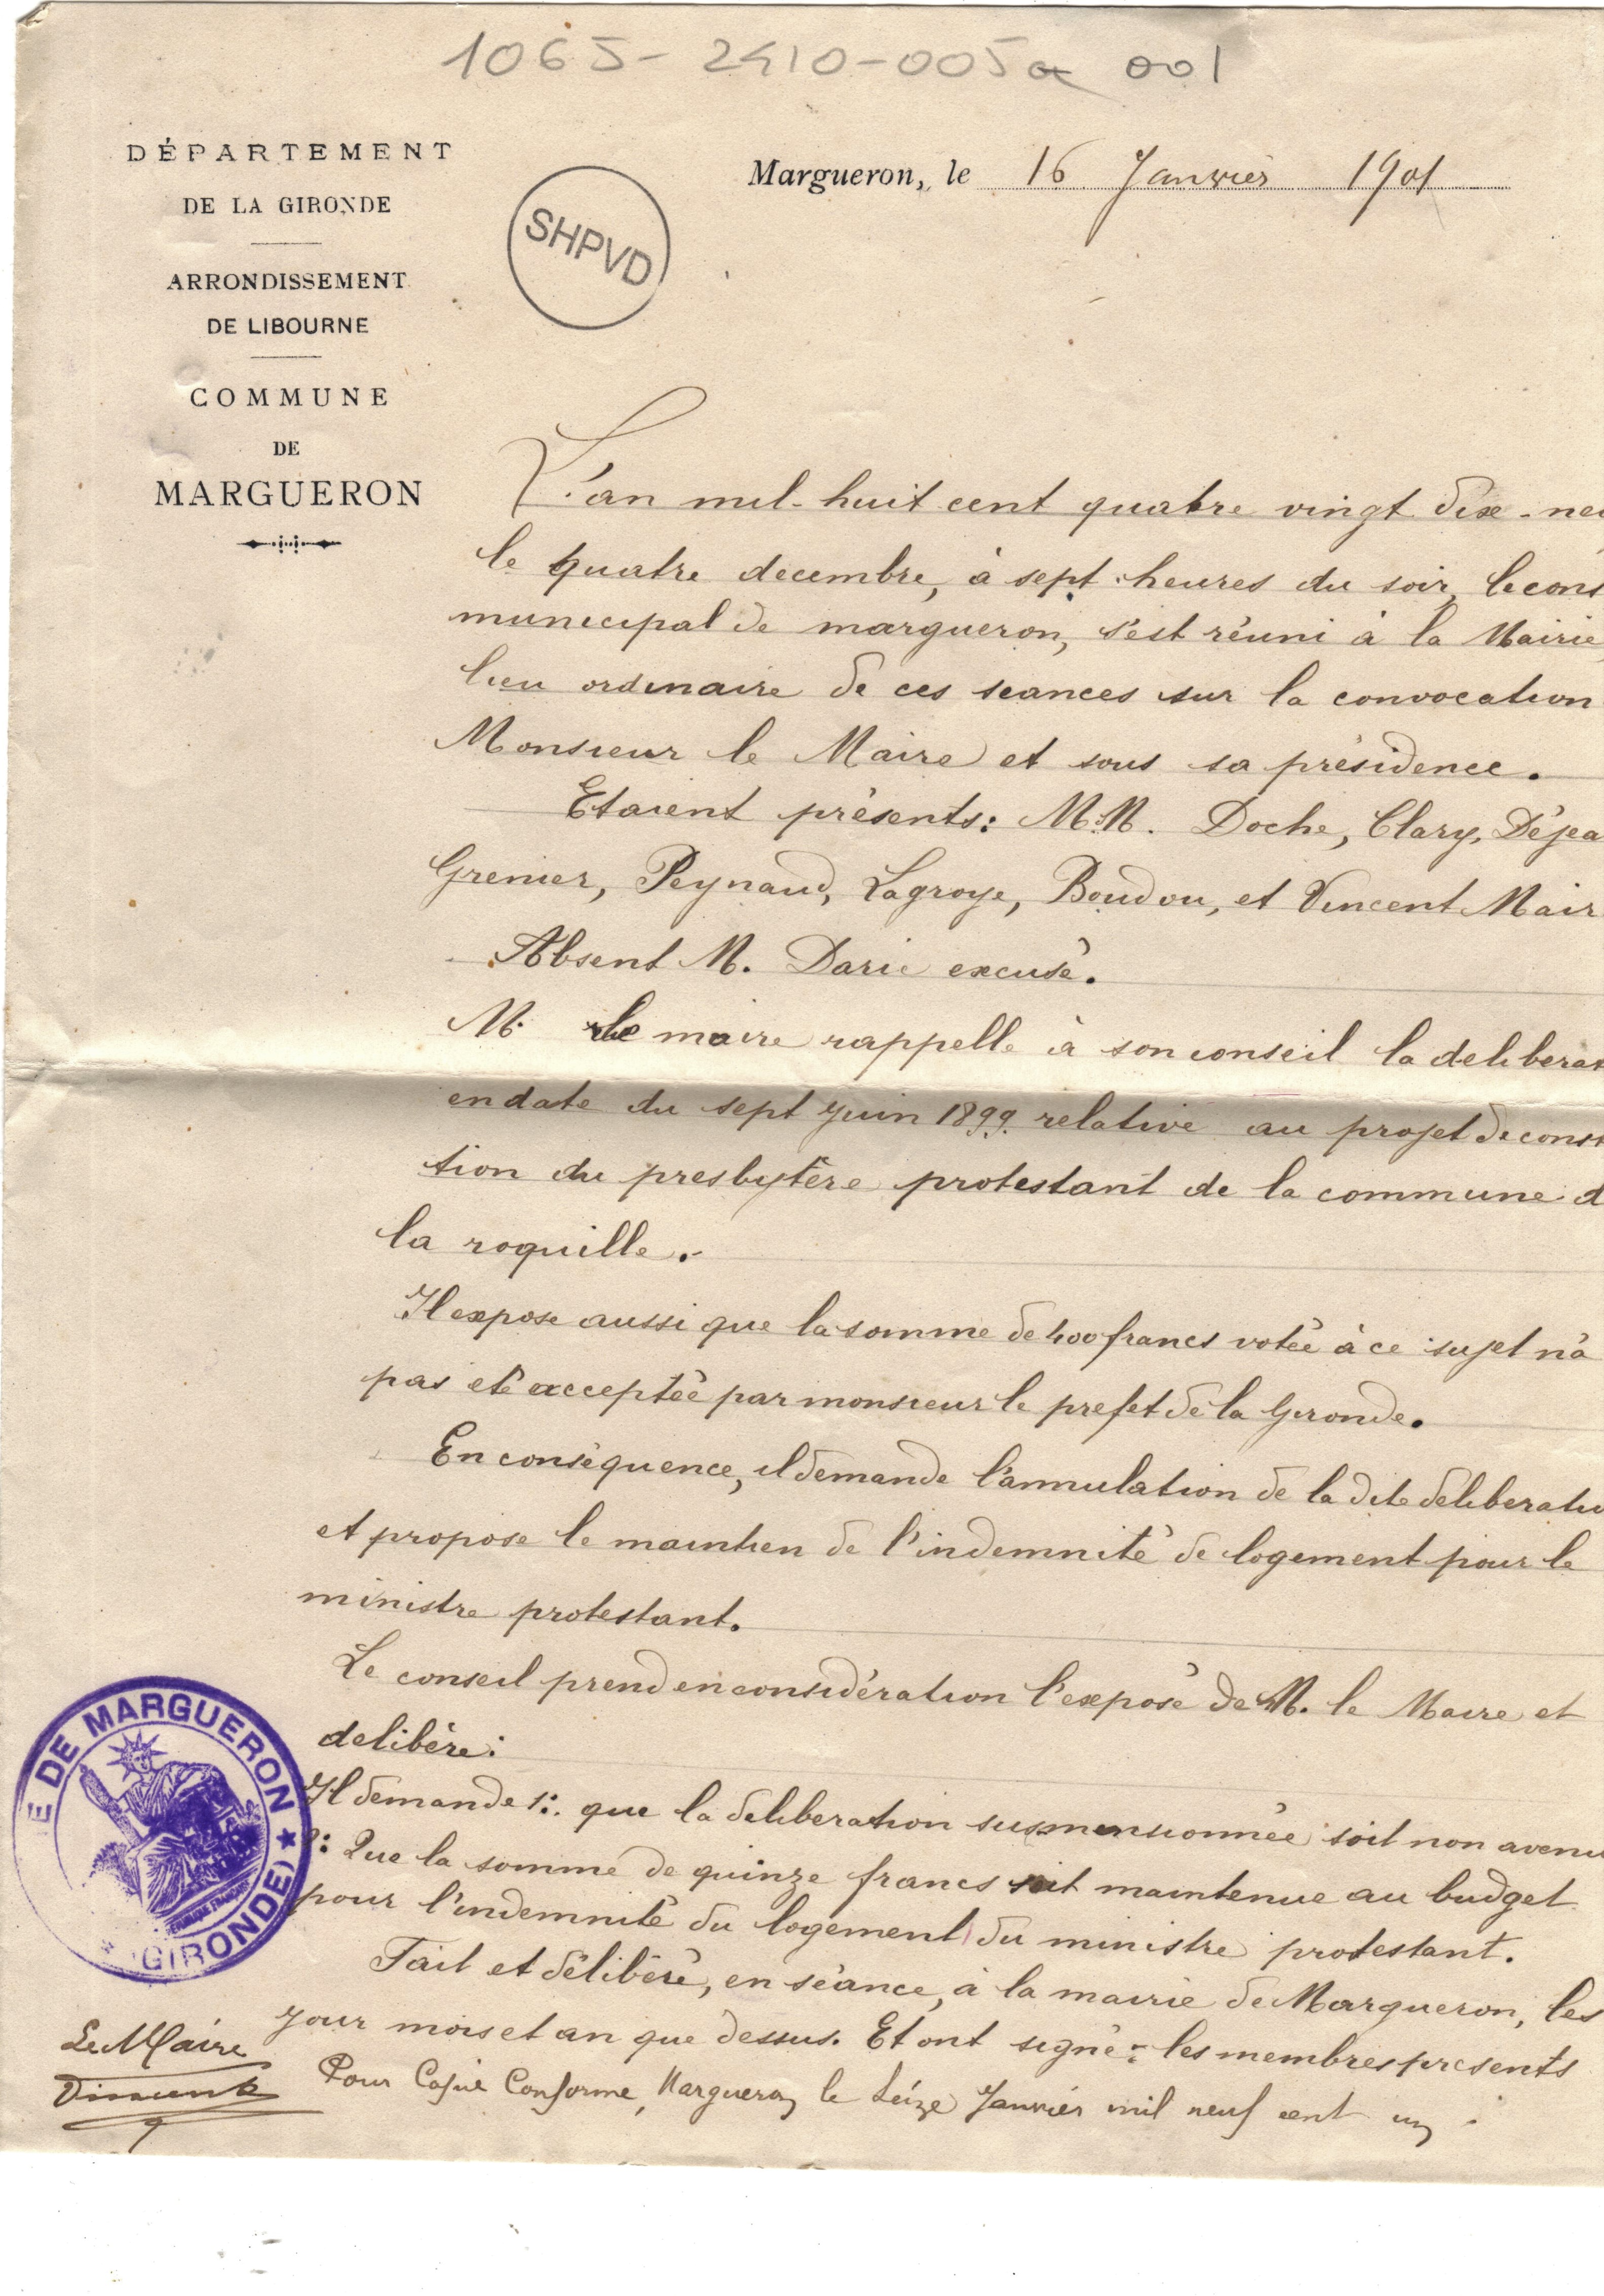 1065-2410-005a 001
DÉPARTEMENT
DE LA GIRONDE
ARRONDISSEMENT
DE LIBOURNE
COMMUNE
DE
MARGUERON
SHPVD
Margueron, le 16 Janvier 1901
L'an mil-huit cent quatre vingt dix-neu
le quatre decembre, à sept heures du soir, le cons
municipal de margueron, s'est réuni à la Mairie
lieu ordinaire de ces seances sur la convocation
Monsieur le Maire et sous sa présidence.
Etaient présents: M.M. Doche, Clary, Déjea
Grenier, Peynaud, Lagroye, Boudou, et Vincent Mair
Absent M. Darie excusé.
M. le maire rappelle à son conseil la deliberat
en date du sept juin 1899 relative au projet de const
tion du presbytère protestant de la commune d
la roquille.
Il expose aussi que la somme de 400 francs votée à ce sujet n'a
pas eté acceptée par monsieur le prefet de la Gironde.
En conséquence, il demande l'annulation de la dite deliberatio
et propose le maintien de l'indemnité de logement pour le
ministre protestant.
Le conseil prend en considération l'exposé de M. le Maire et
delibère:
Il demande 1: que la deliberation susmensionnée soit non avenu
2: Que la somme de quinze francs soit maintenue au budget
pour l'indemnité du logement du ministre protestant.
Fait et délibéré, en séance, à la mairie de Margueron, les
jour mois et an que dessus. Et ont signé: les membres présents
Pour Copie Conforme, Margueron le Seize Janvier mil neuf cent un.
Le Maire
Vincent
E DE MARGUERON
★ (GIRONDE) ★